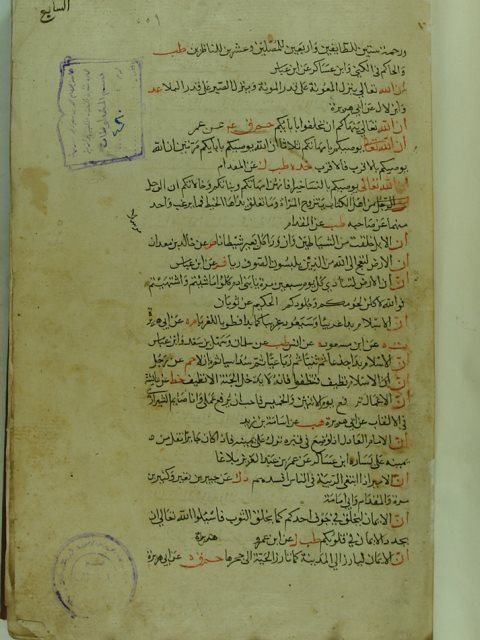 السابع
ورحمة ستين للطايفين واربعين للمصلين وعشرين للناظرين طب
والحاكم في الكنى وابن عساكر عن ابن عباس
ان الله تعالى ينزل المعونة على قدر المونة وينزل الصبر على قدر البلا عد
وابن لال عن ابي هريرة
ان الله تعالى ينهاكم ان تحلفوا بابايكم حم ق عن عمر
ان الله تعالى يوصيكم بامهاتكم ثلاثا ان الله يوصيكم بابايكم مرتين ان الله
يوصيكم بالاقرب فالاقرب خد ه طب ك عن المقدام
ان الله تعالى يوصيكم بالنسا خيرا فانهن امهاتكم وبناتكم وخالاتكم ان الرجل
من اهل الكتاب يتزوج المراة وما تعلق يداها الخيط فما يرغب واحد
منهما عن صاحبه طب عن المقدام
ان الابل خلقت من الشياطين وان ورا كل بعير شيطانا ص عن خالد بن معدان
ان الارض لتعج الى الله من الذين يلبسون الصوف ريا فر عن ابن عباس
ان الارض لتنادي كل يوم سبعين مرة يا بني ادم كلوا ما شيتم واشتهيتم
فوالله لاكلن لحومكم وجلودكم الحكيم عن ثوبان
ان الاسلام بدا غريبا وسيعود غريبا كما بدا فطوبى للغربا م ه عن ابي هريرة
ت ه عن ابن مسعود ه عن انس طب عن سلمان وسهل بن سعد وابن عباس
ان الاسلام بدا جذعا ثم ثنيا ثم رباعيا ثم سديسا ثم بازلا حم عن رجل
ان الاسلام نظيف فتنظفوا فانه لا يدخل الجنة الا نظيف خط عن عايشة
ان الاعمال ترفع يوم الاثنين والخميس فاحب ان يرفع عملي وانا صايم الشيرازي
في الالقاب عن ابي هريرة هب عن اسامة بن زيد
ان الامام العادل اذا وضع في قبره ترك على يمينه فاذا كان جايرا نقل من
يمينه على يساره ابن عساكر عن عمر بن عبد العزيز بلاغا
ان الامير اذا ابتغى الريبة في الناس افسدهم د ك عن جبير بن نفير وكثير بن
مرة والمقدام وابي امامة
ان الايمان ليخلق في جوف احدكم كما يخلق الثوب فاسئلوا الله تعالى ان
يجدد الايمان في قلوبكم طب ك عن ابن عمرو
ان الايمان ليارز الى المدينة كما تارز الحية الى جحرها حم ق ه عن ابي هريرة